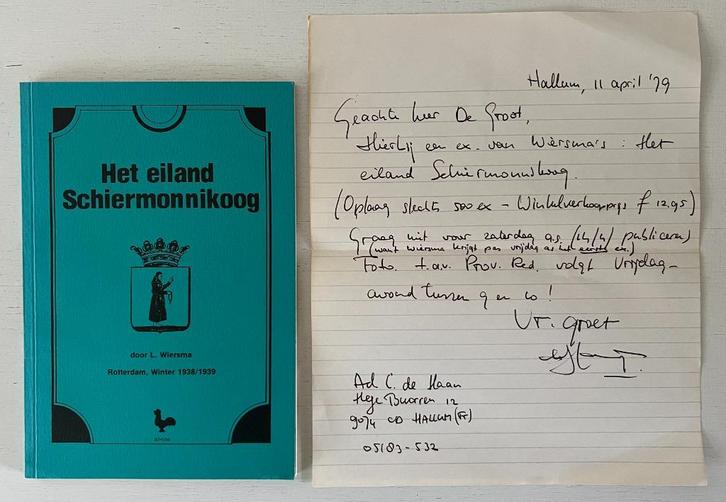 Het eiland
Schiermonnikoog
door L. Wiersma
Rotterdam, Winter 1938/1939
Hallum, 11 april '79
Geachte heer De Groot,
Hierbij een ex. van Wiersma's: Het
eiland Schiermonnikoog.
(Oplaag slechts 500 ex – Winkelverkoopprijs f 12,95)
Graag niet voor zaterdag a.s. (14/4) publiceren
(want Wiersma krijgt pas vrijdag as het eerste ex.)
Foto t.a.v. Prov. Red. volgt vrijdag-
avond tussen 9 en 10!
Vr. groet
Ad C. de Haan
Hege Buorren 12
9074 CD HALLUM (Fr)
05183-532